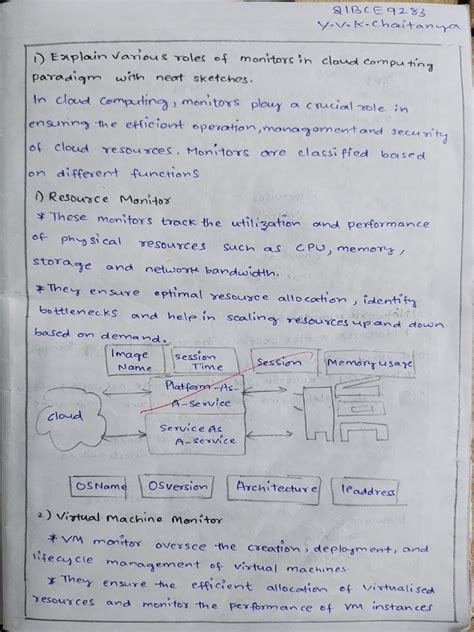 21BCE9283
Y.V.K.Chaitanya
1) Explain various roles of monitors in cloud computing
paradigm with neat sketches.
In cloud computing, monitors play a crucial role in
ensuring the efficient operation, management and security
of cloud resources. Monitors are classified based
on different functions
1) Resource Monitor
* These monitors track the utilization and performance
of physical resources such as CPU, memory,
storage and network bandwidth.
* They ensure optimal resource allocation, identify
bottlenecks and help in scaling resources up and down
based on demand.
Image Name
Session Time
Session
Memory usage
Platform-As
A-service
cloud
Service As
A-service
OSName
OSversion
Architecture
IPaddress
2) Virtual Machine Monitor
* VM monitor oversee the creation, deployment, and
lifecycle management of virtual machines
* They ensure the efficient allocation of virtualised
resources and monitor the performance of VM instances